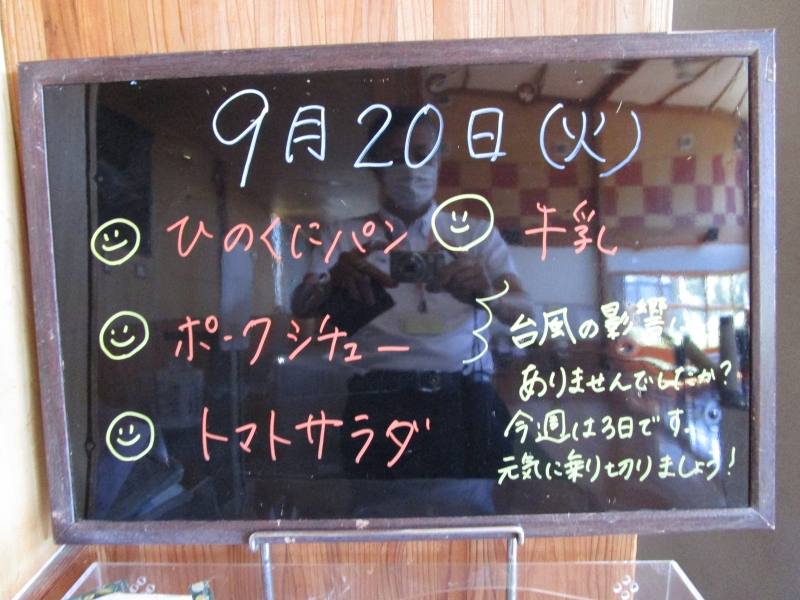 9月20日(火)
ひのくにパン
牛乳
ポークシチュー
トマトサラダ
台風の影響は
ありませんでしたか?
今週は3日です。
元気に乗り切りましょう!